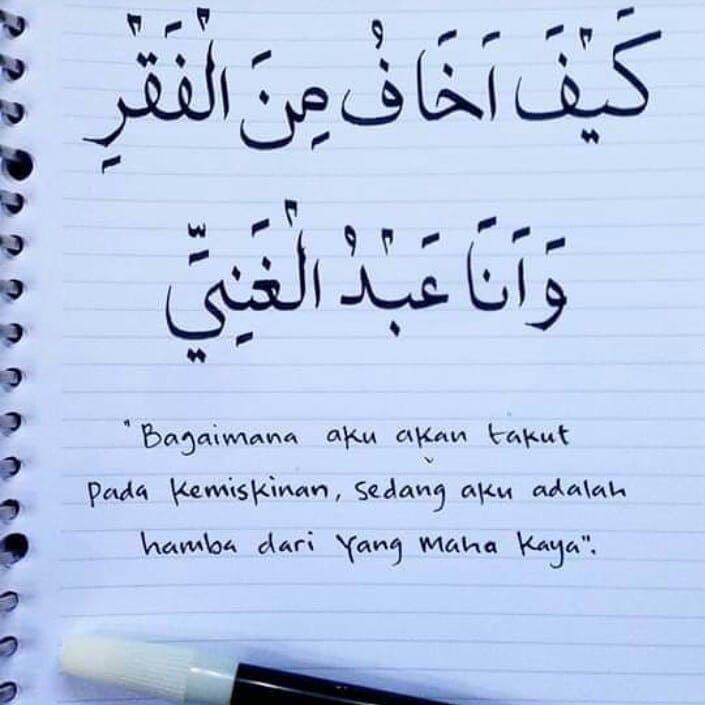 كَيْفَ اَخَافُ مِنَ الْفَقْرِ
وَاَنَا عَبْدُ الْغَنِيِّ
"Bagaimana aku akan takut
pada kemiskinan, sedang aku adalah
hamba dari Yang Maha Kaya".